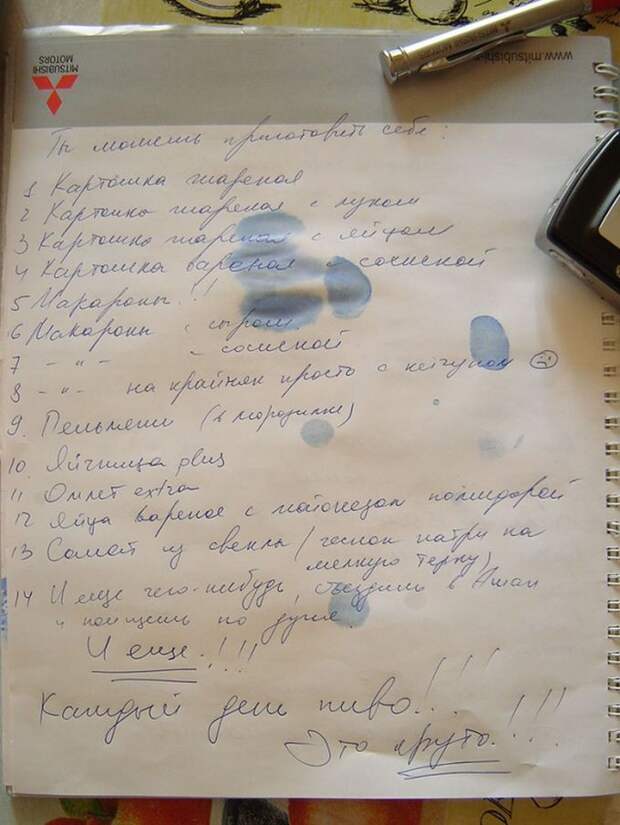 MITSUBISHI
MOTORS
www.mitsubishi-
Ты можешь приготовить себе:
1 Картошка жареная
2 Картошка жареная с луком
3 Картошка жареная с яйцом
4 Картошка вареная с сосиской
5 Макароны!!!
6 Макароны с сыром
7 - " - с сосиской
8 - " - на крайняк просто с кетчупом ☹
9. Пельмени (в морозилке)
10. Яичница plus
11 Омлет extra
12 Яйца вареное с майонезом помидорой
13 Салат из свеклы (чеснок натри на
мелкую терку)
14 И еще чего-нибудь, съездишь в Ашан
и поищешь по душе.
И еще!!!
Каждый день пиво!!!
Это круто!!!